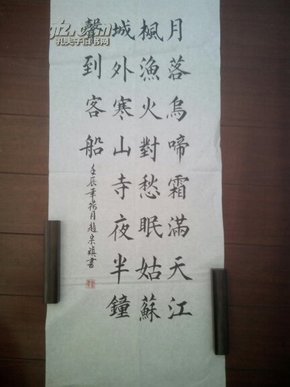 月落烏啼霜滿天江
楓漁火對愁眠姑蘇
城外寒山寺夜半鐘
聲到客船
壬辰年月趙書
孔夫子旧书网